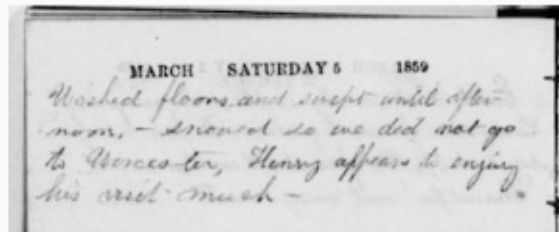 MARCH SATURDAY 5 1859
Washed floors and swept until after-
noon, - snowed so we did not go
to Worcester, Henry appears to enjoy
his visit much -